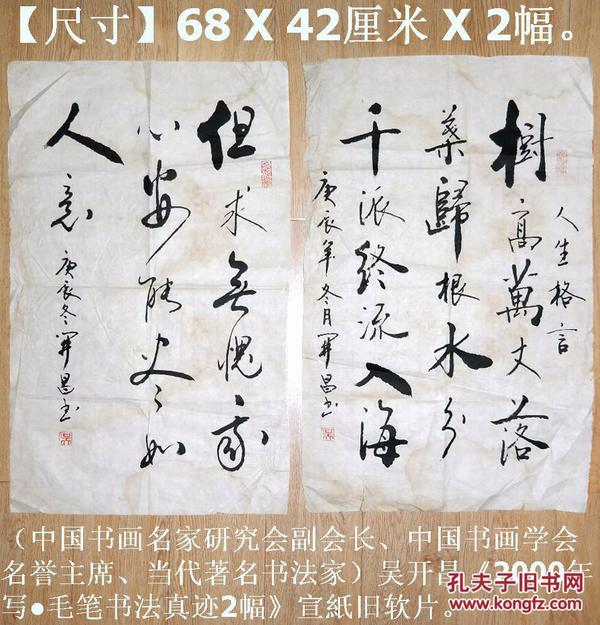 【尺寸】68 X 42厘米 X 2幅。
人生格言
樹高萬丈落
葉歸根水分
千派終流入海
庚辰年冬月開昌书
但求無愧我
心安能事々如
人意
庚辰冬開昌书
（中国书画名家研究会副会长、中国书画学会
名誉主席、当代著名书法家）吴开昌《2000年
写●毛笔书法真迹2幅》宣紙旧软片。
孔夫子旧书网
www.kongfz.com